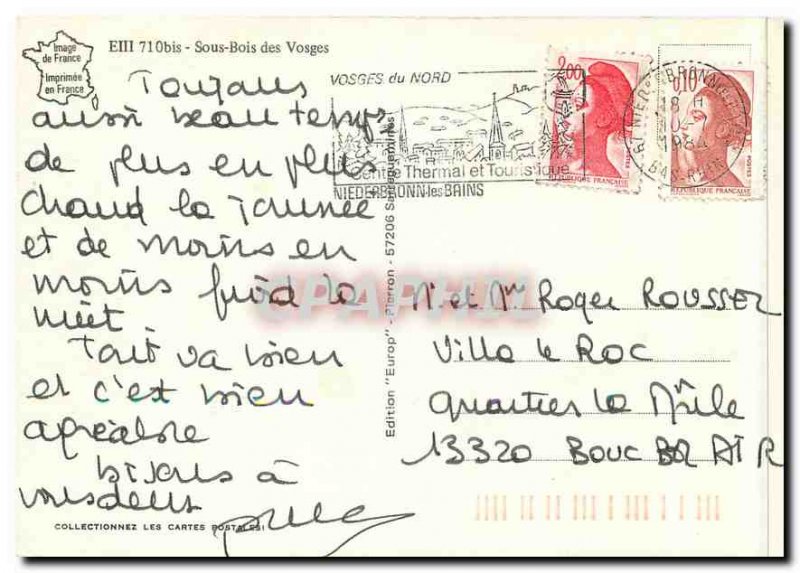 Image
de France
Imprimée
en France
EIII 710bis - Sous-Bois des Vosges
Toujours
aussi beau temps
de plus en plus
chaud la journée
et de moins en
moins froid la
nuit.
Tout va bien
et c'est bien
agréable
bisous à
vous deux
COLLECTIONNEZ LES CARTES POSTALES!
Edition "Europ" - Pierron - 57206 Sarreguemines
VOSGES du NORD
Centre Thermal et Touristique
NIEDERBRONN-les-BAINS
2,00
REPUBLIQUE FRANÇAISE
0,10
POSTES
REPUBLIQUE FRANÇAISE
67 NIEDERBRONN
18 H
1984
BAS-RHIN
CPAPHIL
Mr et Mme Roger ROUSSEL
Villa le ROC
Quartier la Mûle
13320 BOUC BEL AIR